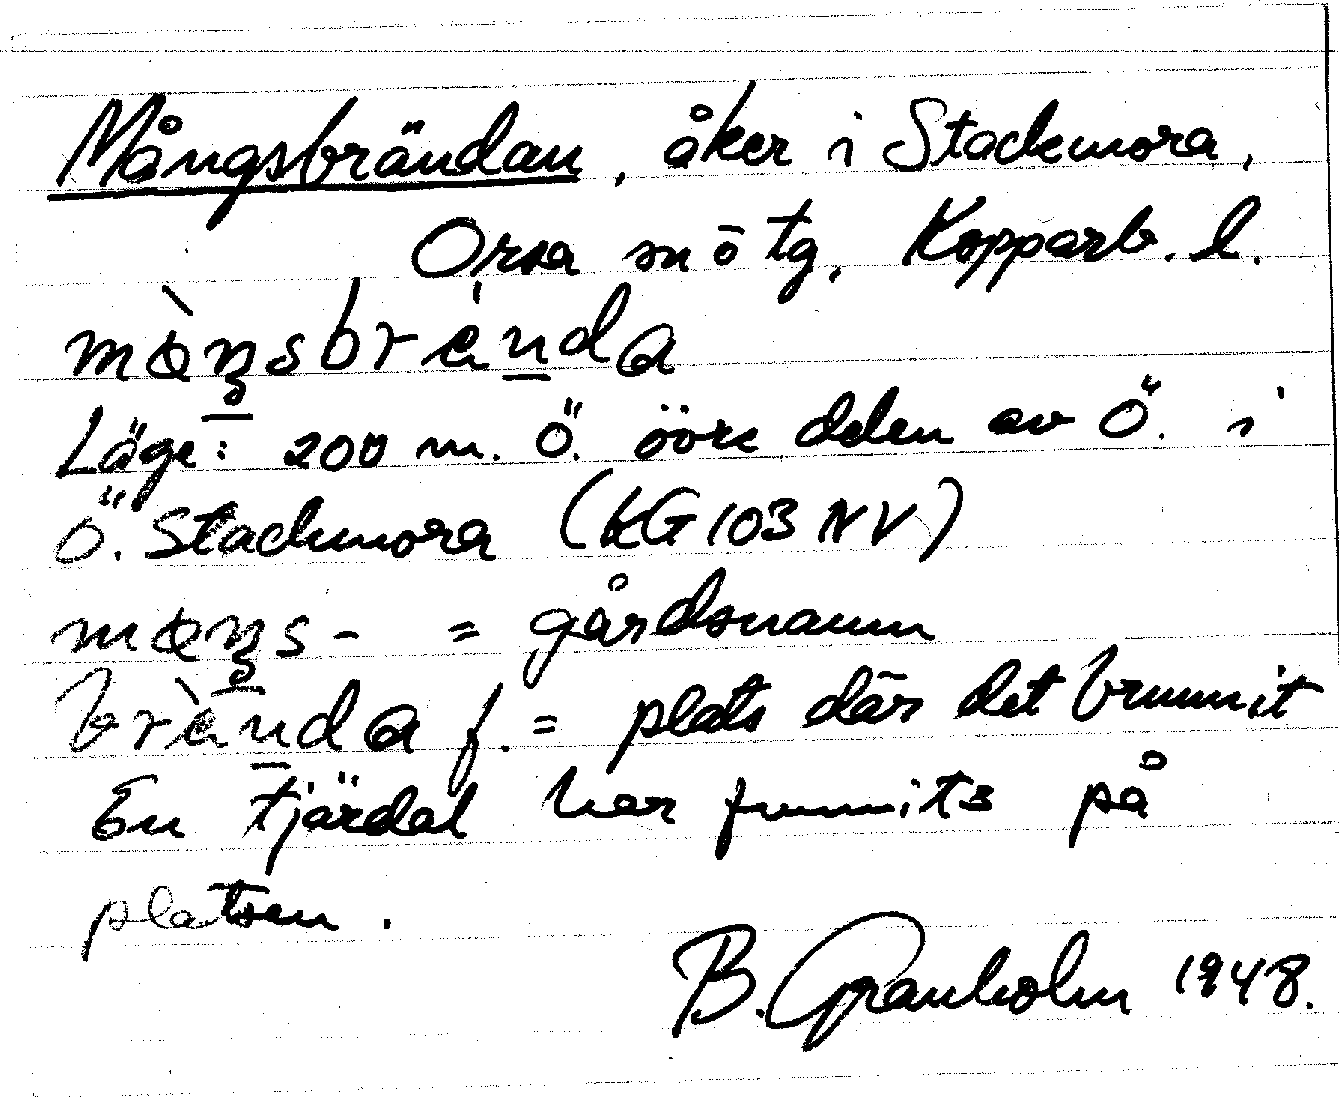 Mångsbrändan, åker i Stackmora,
Orsa sn ö tg, Kopparb. l.
mòŋsbrènda
Läge: 200 m. Ö. övre delen av Ö. i
Ö. Stackmora (KG 103 NV)
moŋs- = gårdsnamn
brènda f. = plats där det brunnit
En tjärdal har funnits på
platsen.
B. Granholm 1948.